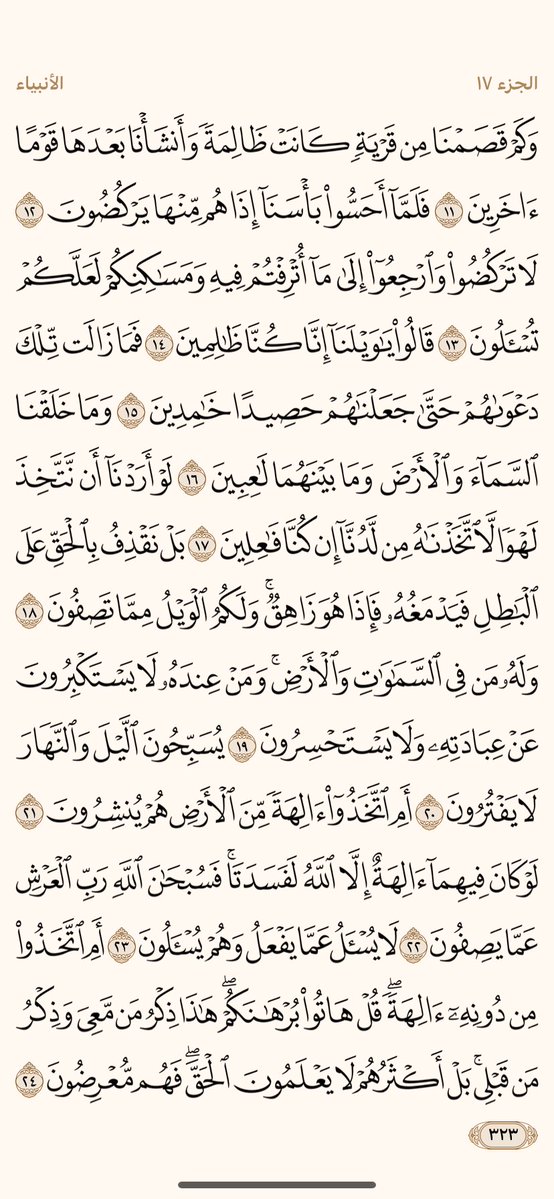 الجزء ١٧
الأنبياء
وَكَمْ قَصَمْنَا مِن قَرْيَةٍ كَانَتْ ظَالِمَةً وَأَنشَأْنَا بَعْدَهَا قَوْمًا
ءَاخَرِينَ ١١ فَلَمَّآ أَحَسُّوا۟ بَأْسَنَآ إِذَا هُم مِّنْهَا يَرْكُضُونَ ١٢
لَا تَرْكُضُوا۟ وَٱرْجِعُوٓا۟ إِلَىٰ مَآ أُتْرِفْتُمْ فِيهِ وَمَسَـٰكِنِكُمْ لَعَلَّكُمْ
تُسْـَٔلُونَ ١٣ قَالُوا۟ يَـٰوَيْلَنَآ إِنَّا كُنَّا ظَـٰلِمِينَ ١٤ فَمَا زَالَت تِّلْكَ
دَعْوَىٰهُمْ حَتَّىٰ جَعَلْنَـٰهُمْ حَصِيدًا خَـٰمِدِينَ ١٥ وَمَا خَلَقْنَا
ٱلسَّمَآءَ وَٱلْأَرْضَ وَمَا بَيْنَهُمَا لَـٰعِبِينَ ١٦ لَوْ أَرَدْنَآ أَن نَّتَّخِذَ
لَهْوًا لَّٱتَّخَذْنَـٰهُ مِن لَّدُنَّآ إِن كُنَّا فَـٰعِلِينَ ١٧ بَلْ نَقْذِفُ بِٱلْحَقِّ عَلَى
ٱلْبَـٰطِلِ فَيَدْمَغُهُۥ فَإِذَا هُوَ زَاهِقٌ ۚ وَلَكُمُ ٱلْوَيْلُ مِمَّا تَصِفُونَ ١٨
وَلَهُۥ مَن فِى ٱلسَّمَـٰوَٰتِ وَٱلْأَرْضِ ۚ وَمَنْ عِندَهُۥ لَا يَسْتَكْبِرُونَ
عَنْ عِبَادَتِهِۦ وَلَا يَسْتَحْسِرُونَ ١٩ يُسَبِّحُونَ ٱلَّيْلَ وَٱلنَّهَارَ
لَا يَفْتُرُونَ ٢٠ أَمِ ٱتَّخَذُوٓا۟ ءَالِهَةً مِّنَ ٱلْأَرْضِ هُمْ يُنشِرُونَ ٢١
لَوْ كَانَ فِيهِمَآ ءَالِهَةٌ إِلَّا ٱللَّهُ لَفَسَدَتَا ۚ فَسُبْحَـٰنَ ٱللَّهِ رَبِّ ٱلْعَرْشِ
عَمَّا يَصِفُونَ ٢٢ لَا يُسْـَٔلُ عَمَّا يَفْعَلُ وَهُمْ يُسْـَٔلُونَ ٢٣ أَمِ ٱتَّخَذُوا۟
مِن دُونِهِۦٓ ءَالِهَةً ۖ قُلْ هَاتُوا۟ بُرْهَـٰنَكُمْ ۖ هَـٰذَا ذِكْرُ مَن مَّعِىَ وَذِكْرُ
مَن قَبْلِى ۚ بَلْ أَكْثَرُهُمْ لَا يَعْلَمُونَ ٱلْحَقَّ ۖ فَهُم مُّعْرِضُونَ ٢٤
٣٢٣